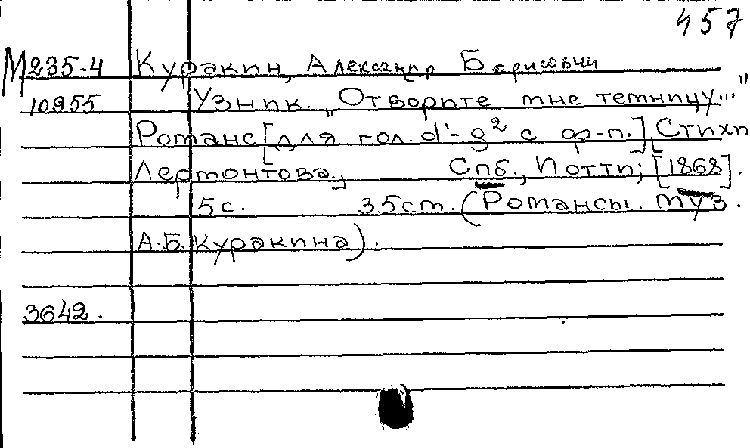 457
М235-4 Куракин, Александр Борисович
10955 Узник. „Отворите мне темницу..."
Романс [для гол. d¹-g² с ф-п.] [Стихи
Лермонтова.] Спб., Иотти, [1868].
5с. 35см. (Романсы. муз.
А.Б. Куракина).
3642.